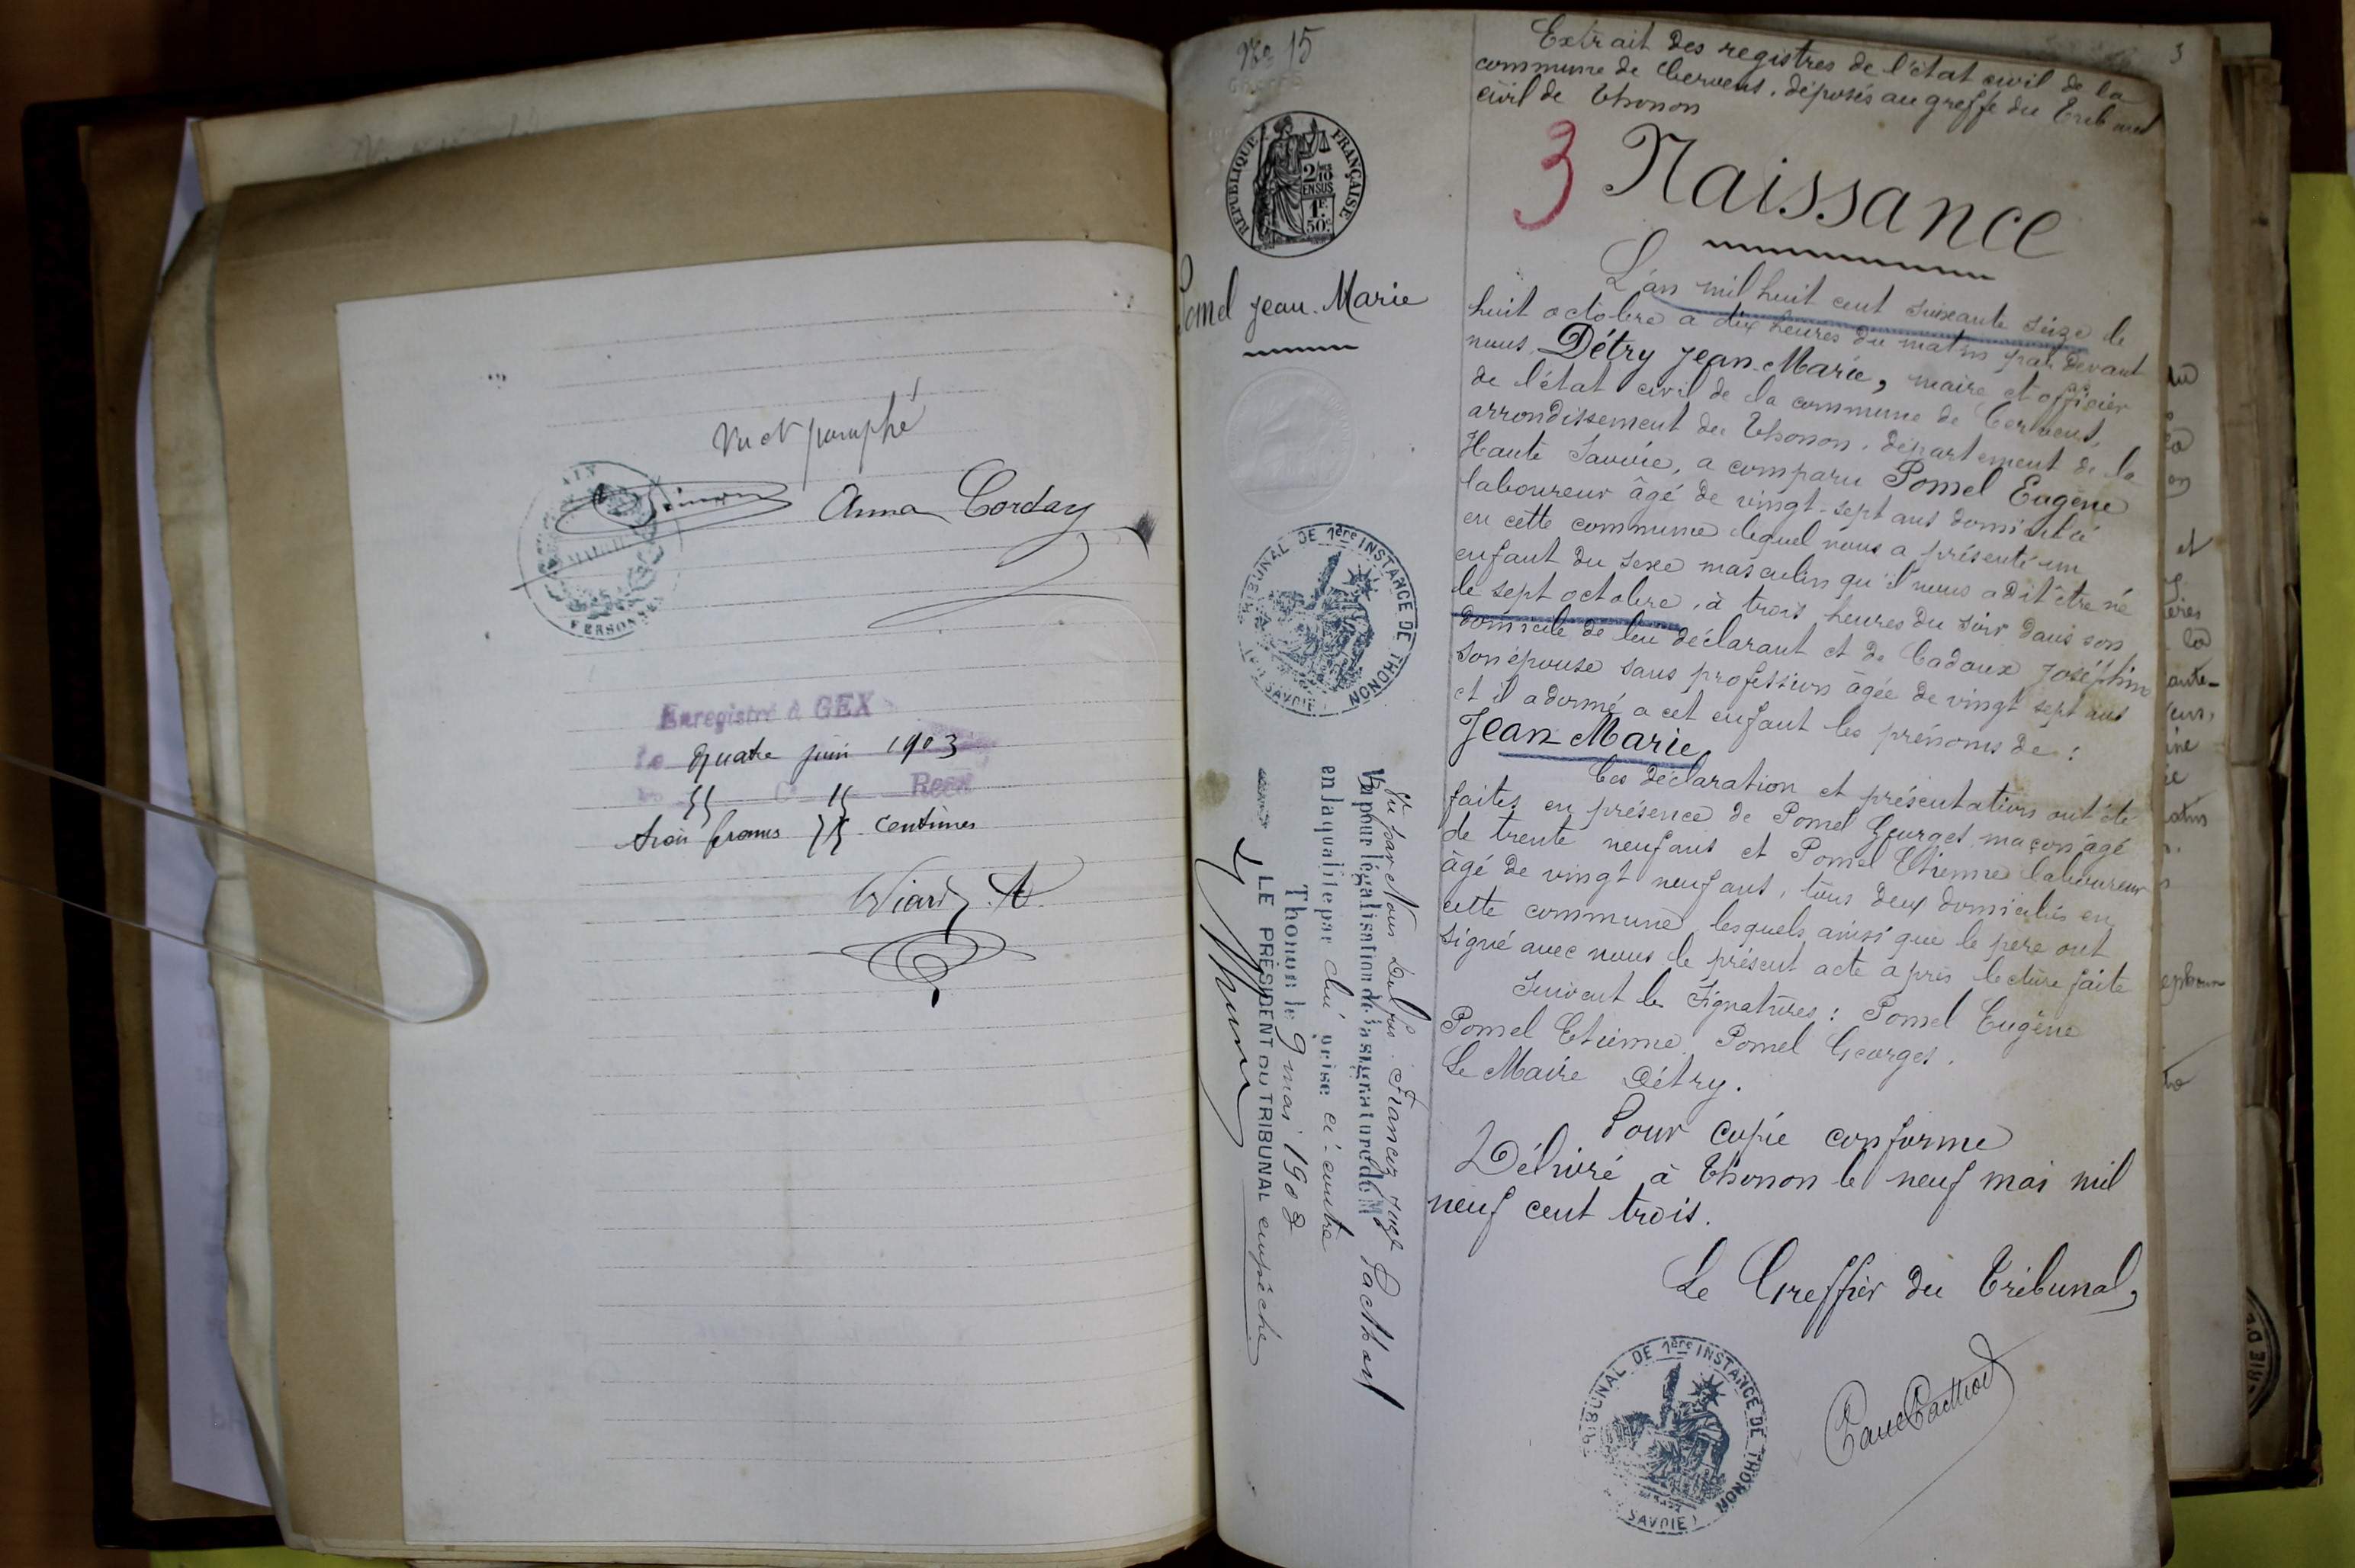 Vu et paraphé
Anna Corday
AIN
MAIRIE
VERSONNEX
Enregistré à GEX
Le quatre juin 1903
trois francs 75 centimes
Wiard A
No 15
RÉPUBLIQUE FRANÇAISE
2/10
EN SUS
1F.
50c.
Pomel Jean Marie
TRIBUNAL DE 1ère INSTANCE DE THONON
(HTE SAVOIE)
Vu par Nous Delfre Francis juge
Vu pour légalisation de la signature de M Pacthod
en la qualité par lui prise ci-contre
Thonon le 9 mai 1903
LE PRÉSIDENT DU TRIBUNAL empêché
3
Extrait des registres de l'état civil de la
commune de Cervens, déposés au greffe du Tribunal
civil de Thonon
3 Naissance
L'an mil huit cent soixante seize le
huit octobre à dix heures du matin par devant
nous Détry Jean-Marie, maire et officier
de l'état civil de la commune de Cervens,
arrondissement de Thonon, département de la
Haute Savoie, a comparu Pomel Eugène
laboureur âgé de vingt-sept ans domicilié
en cette commune lequel nous a présenté un
enfant du sexe masculin qu'il nous a dit être né
le sept octobre, à trois heures du soir dans son
domicile de lui déclarant et de Cadoux Joséphine
son épouse sans profession âgée de vingt sept ans
et il a donné a cet enfant les prénoms de :
Jean-Marie,
Ces déclaration et présentation ont été
faites en présence de Pomel Georges maçon âgé
de trente neuf ans et Pomel Etienne laboureur
âgé de vingt neuf ans, tous deux domiciliés en
cette commune, lesquels ainsi que le père ont
signé avec nous le présent acte après lecture faite
Suivent les signatures : Pomel Eugène
Pomel Etienne Pomel Georges.
Le Maire Détry.
Pour copie conforme
Délivré à Thonon le neuf mai mil
neuf cent trois.
Le Greffier du Tribunal,
TRIBUNAL DE 1ère INSTANCE DE THONON
SAVOIE)
Pacthod